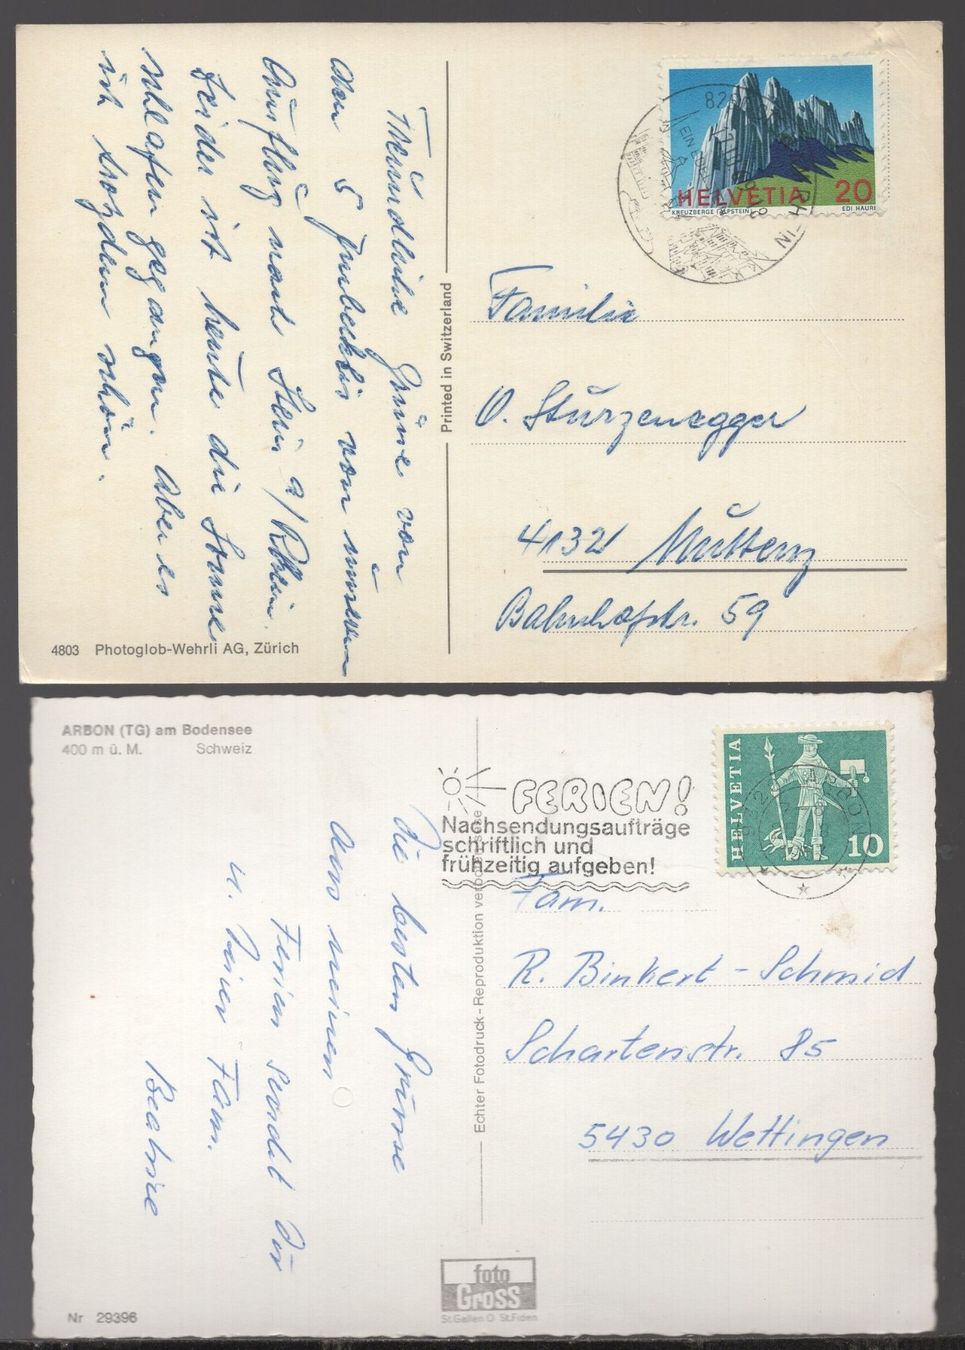 Freundliche Grüsse von
den 5 Jubecklis von unserem
Ausflug nach Stein a/Rhein.
Leider ist heute die Sonne
schlafen gegangen. Aber es
ist trotzdem schön.
4803 Photoglob-Wehrli AG, Zürich
Printed in Switzerland
HELVETIA 20
KREUZBERGE (ALPSTEIN) EDI HAURI
RHEIN
Familie
O. Sturzenegger
4132 Muttenz
Bahnhofstr. 59
ARBON (TG) am Bodensee
400 m ü. M. Schweiz
Die besten Grüsse
aus meinen
Ferien sendet Dir
u. Deiner Fam.
Beatrice
Nr 29396
Echter Fotodruck-Reproduktion verboten
FERIEN!
Nachsendungsaufträge
schriftlich und
frühzeitig aufgeben!
HELVETIA 10
ARBON
Fam.
R. Binkert-Schmid
Schartenstr. 85
5430 Wettingen
foto
Gross
St.Gallen O St.Fiden